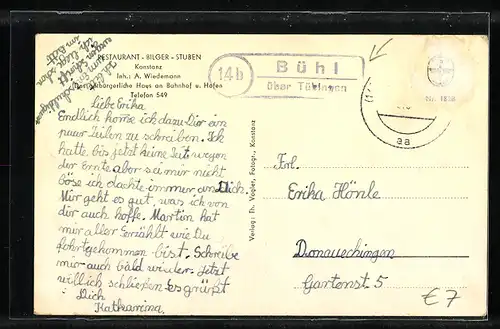 RESTAURANT - BILGER - STUBEN
Konstanz
Inh.: A. Wiedemann
Das gutbürgerliche Haus am Bahnhof u. Hafen
Telefon 549
14b
Bühl
über Tübingen
aa
Liebe Erika
Endlich kome ich dazu Dir ein
paar Zeilen zu schreiben. Ich
hatte bis jetzt keine Zeit wegen
der Ernte aber sei mir nicht
böse ich dachte immer an Dich.
Mir geht es gut, was ich von
dir auch hoffe. Martin hat
mir aller Erzählt wie Du
gekommen bist. Schreibe
mir auch bald wieder. Jetzt
will ich schließen Es grüßt
Dich
Katharina.
Verlag: Th. Vogler, Fotogr., Konstanz
Frl.
Erika Hönle
Donaueschingen
Gartenst. 5
€ 7